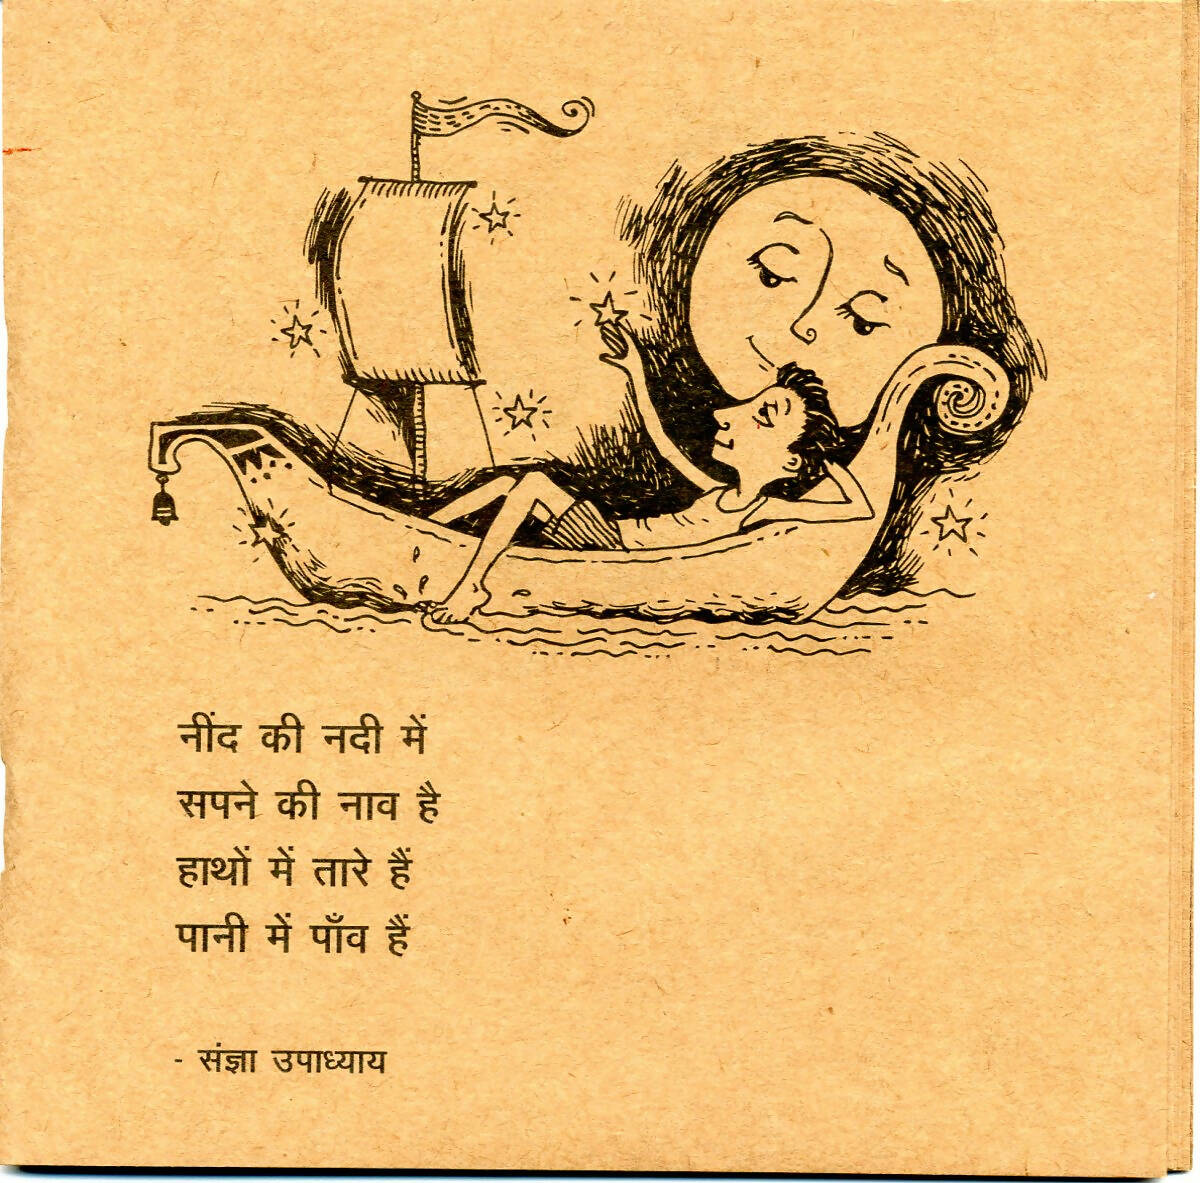 नींद की नदी में
सपने की नाव है
हाथों में तारे हैं
पानी में पाँव हैं
- संज्ञा उपाध्याय